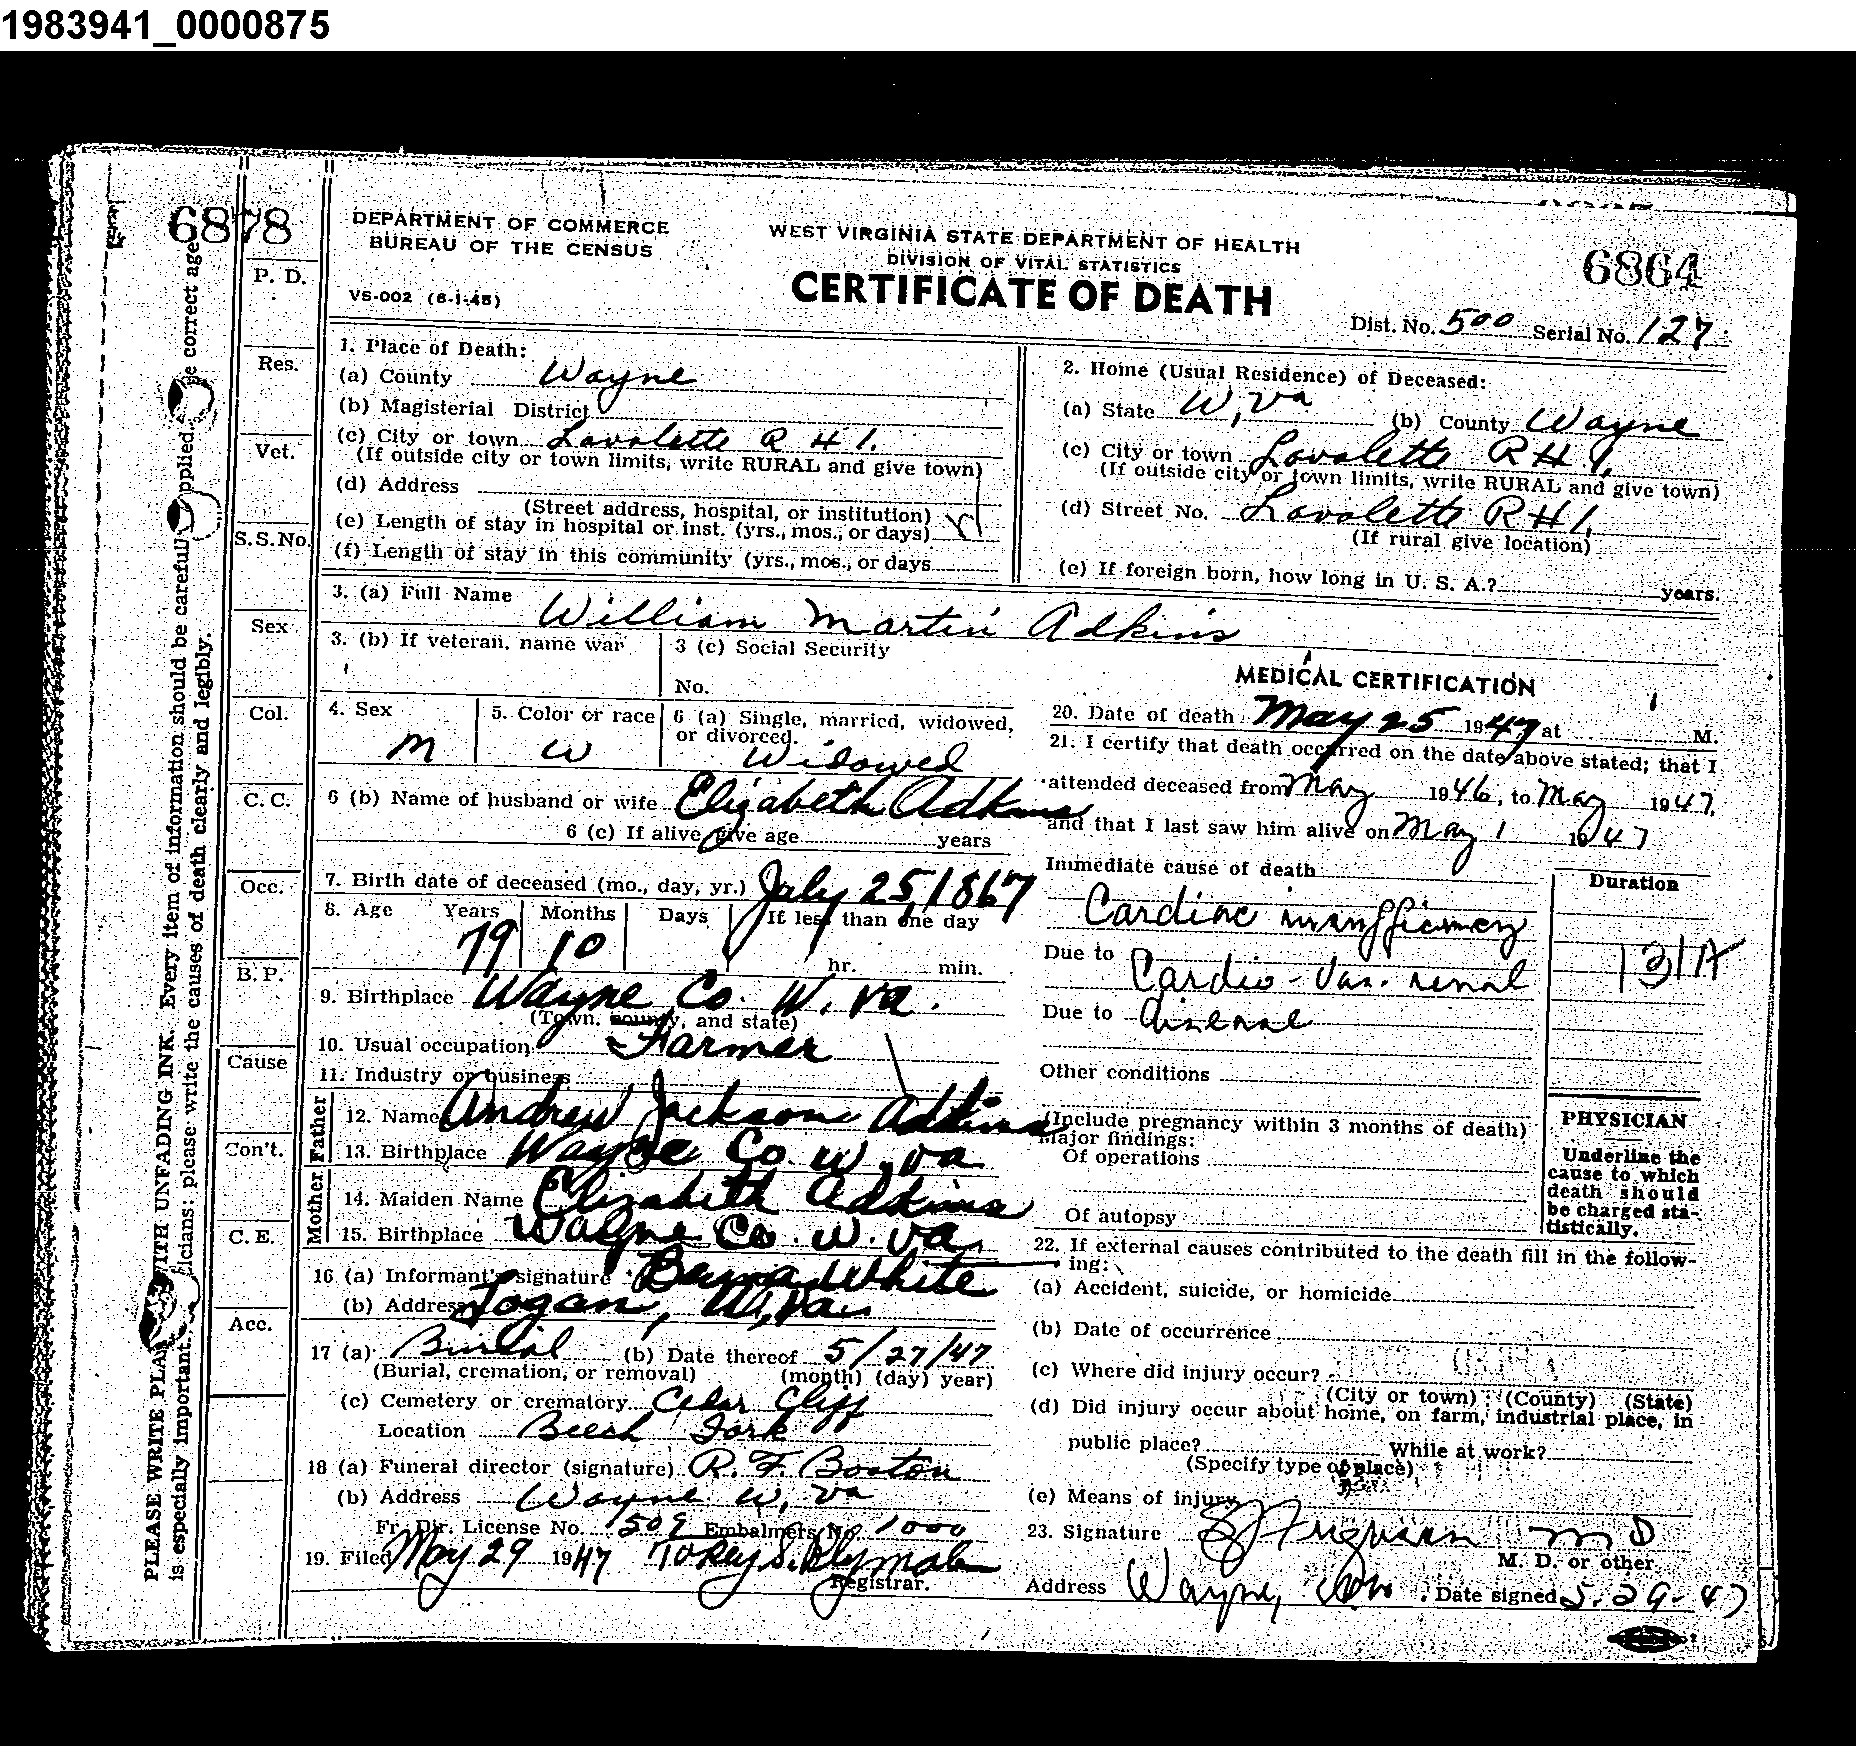 1983941_0000875
6878
DEPARTMENT OF COMMERCE
BUREAU OF THE CENSUS
VS-002 (6-1-45)
WEST VIRGINIA STATE DEPARTMENT OF HEALTH
DIVISION OF VITAL STATISTICS
CERTIFICATE OF DEATH
6864
Dist. No. 500 Serial No. 127
PLEASE WRITE WITH UNFADING INK. Every item of information should be applied. correct age
is especially important. : please write the causes of death clearly and legibly.
P. D.
Res.
Vet.
S.S.No.
Sex
Col.
C. C.
Occ.
B. P.
Cause
Con't.
C. E.
Acc.
1. Place of Death:
(a) County Wayne
(b) Magisterial District
(c) City or town Lavalette R # 1.
(If outside city or town limits, write RURAL and give town)
(d) Address
(Street address, hospital, or institution)
(e) Length of stay in hospital or inst. (yrs., mos., or days)
(f) Length of stay in this community (yrs., mos., or days
2. Home (Usual Residence) of Deceased:
(a) State W, Va (b) County Wayne
(c) City or town Lavalette R # 1,
(If outside city or town limits, write RURAL and give town)
(d) Street No. Lavalette R # 1,
(If rural give location)
(e) If foreign born, how long in U. S. A.? years.
3. (a) Full Name William Martin Adkins
3. (b) If veteran, name war
3 (c) Social Security
No.
4. Sex M
5. Color or race W
6 (a) Single, married, widowed,
or divorced. Widowed
6 (b) Name of husband or wife Elizabeth Adkins
6 (c) If alive, give age years
7. Birth date of deceased (mo., day, yr.) July 25, 1867
8. Age Years Months Days If less than one day
79 10 hr. min.
9. Birthplace Wayne Co. W. Va.
(Town, county, and state)
10. Usual occupation Farmer
11. Industry or business
Father
12. Name Andrew Jackson Adkins
13. Birthplace Wayne Co. W. Va
Mother
14. Maiden Name Elizabeth Adkins
15. Birthplace Wayne Co. W. Va.
16 (a) Informant's signature White
(b) Address Logan, W, Va.
17 (a) Burial (b) Date thereof 5/27/47
(Burial, cremation, or removal) (month) (day) year)
(c) Cemetery or crematory Cedar Cliff
Location Beech Fork
18 (a) Funeral director (signature) R. F. Boston
(b) Address Wayne W, Va
Fr. Dir. License No. 509 Embalmers No. 1000
19. Filed May 29 1947
Registrar.
MEDICAL CERTIFICATION
20. Date of death May 25 1947 at M.
21. I certify that death occurred on the date above stated; that I
attended deceased from May 1946, to May 1947,
and that I last saw him alive on May 1 1947
Immediate cause of death
Duration
Cardiac insufficiency
Due to Cardio-Vas. renal
131A
Due to disease
Other conditions
(Include pregnancy within 3 months of death)
Major findings:
Of operations
Of autopsy
PHYSICIAN
Underline the
cause to which
death should
be charged sta-
tistically.
22. If external causes contributed to the death fill in the follow-
ing:
(a) Accident, suicide, or homicide
(b) Date of occurrence
(c) Where did injury occur?
(City or town) (County) (State)
(d) Did injury occur about home, on farm, industrial place, in
public place? While at work?
(Specify type of place)
(e) Means of injury
23. Signature Ferguson M D
M. D. or other
Address Wayne, Date signed 5-29-47